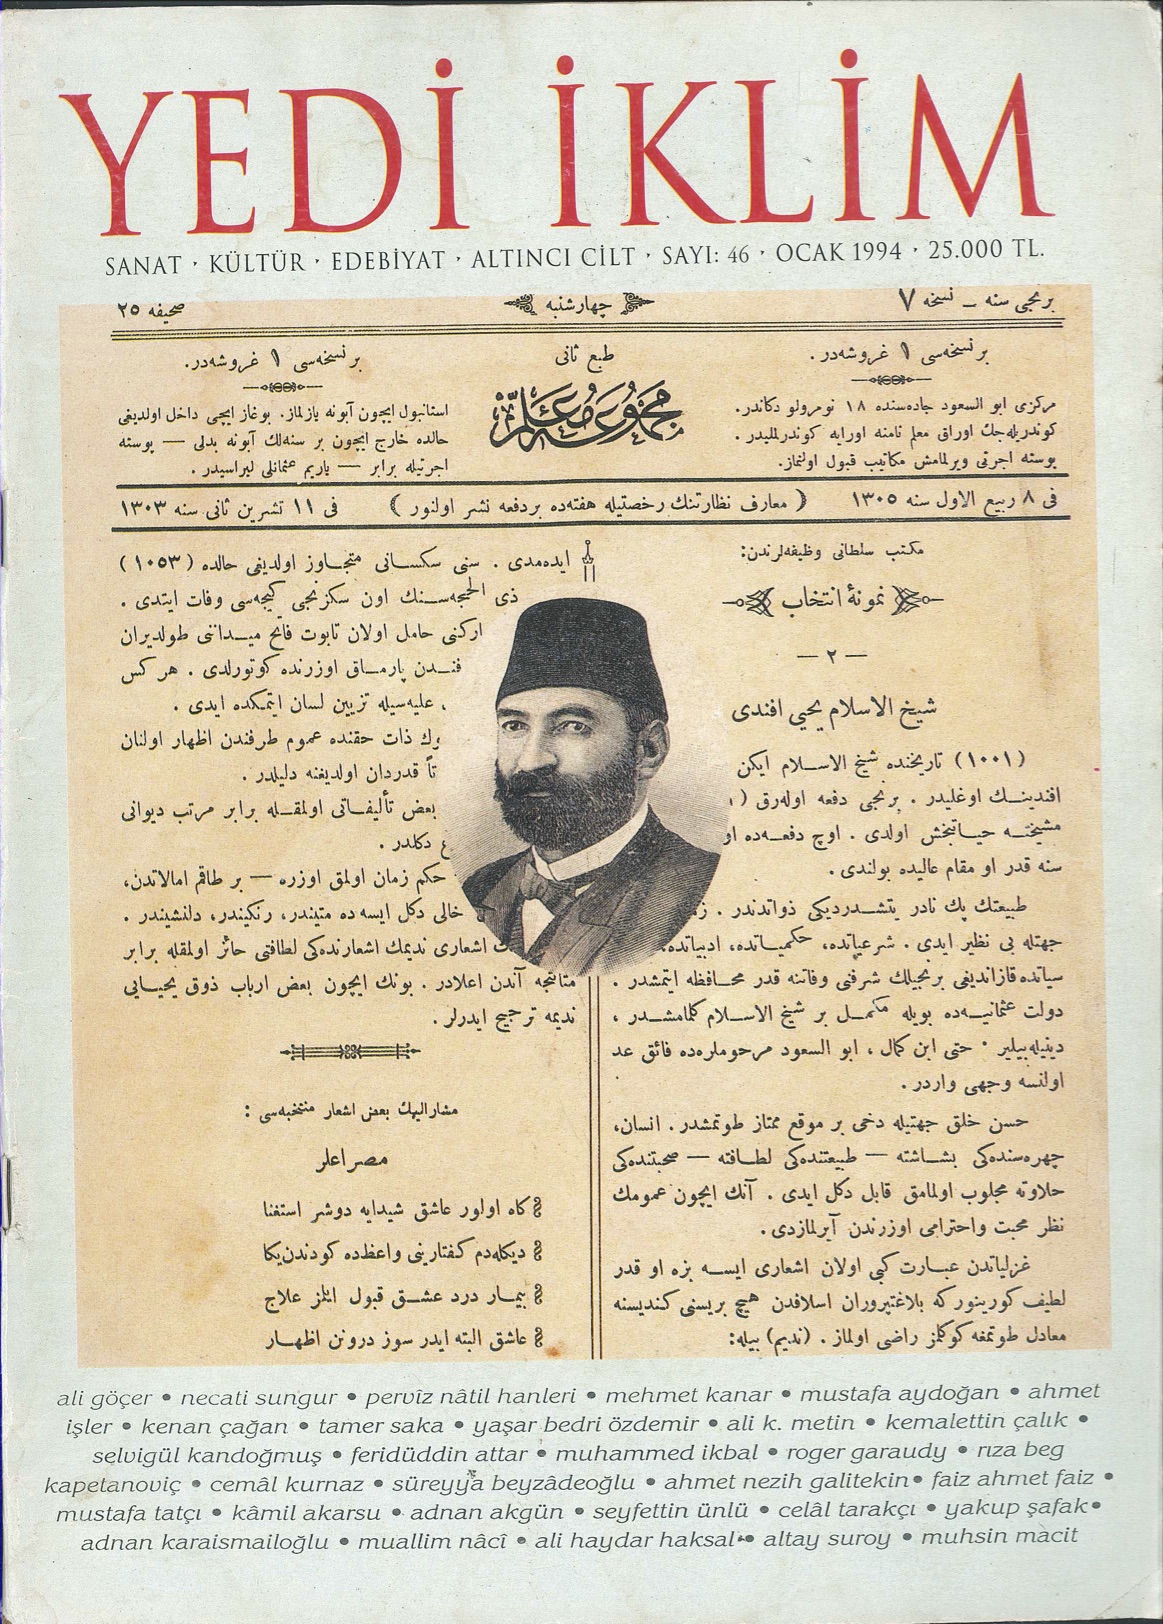 YEDİ İKLİM
SANAT · KÜLTÜR · EDEBİYAT · ALTINCI CİLT · SAYI: 46 · OCAK 1994 · 25.000 TL.
برنجی سنه — نسخه ٧
چهارشنبه
صحیفه ٢٥
بر نسخه‌سی ١ غروشه‌در.
مرکزی ابو السعود جاده‌سنده ١٨ نومرولو دکاندر.
کوندریله‌جك اوراق معلم نامنه اورایه کوندرلملیدر.
پوسته اجرتی ویرلمامش مکاتیب قبول اولنماز.
طبع ثانی
مجموعهٔ معلم
بر نسخه‌سی ١ غروشه‌در.
استانبول ایچون آبونه یازلماز. بوغاز ایچی داخل اولدیغی
حالده خارج ایچون بر سنه‌لك آبونه بدلی — پوسته
اجرتیله برابر — یاریم عثمانلی لیراسیدر.
فی ٨ ربیع الاول سنه ١٣٠٥
(معارف نظارتنك رخصتیله هفته‌ده بردفعه نشر اولنور)
فی ١١ تشرین ثانی سنه ١٣٠٣
مکتب سلطانی وظیفه‌لرندن:
نمونهٔ انتخاب
— ٢ —
شیخ الاسلام یحیی افندی
(١٠٠١) تاریخنده شیخ الاسلام ایکن
افندینك اوغلیدر. برنجی دفعه اوله‌رق (١
مشیخته حیاتبخش اولدی. اوچ دفعه‌ده او
سنه قدر او مقام عالیده بولندی.
طبیعتك پك نادر یتشدردیکی ذواتدندر. ز
جهتله بی نظیر ایدی. شرعیاتده، حکمیاتده، ادبیاتده،
سیاتده قازاندیغی برنجیلك شرفنی وفاتنه قدر محافظه ایتمشدر.
دولت عثمانیه‌ده بویله مکمل بر شیخ الاسلام کلمامشدر،
دینیله‌بیلیر. حتی ابن کمال، ابو السعود مرحوملره‌ده فائق عد
اولنسه وجهی واردر.
حسن خلق جهتیله دخی بر موقع ممتاز طوتمشدر. انسان،
چهره‌سنده‌کی بشاشته — طبیعتنده‌کی لطافته — صحبتنده‌کی
حلاوته مجلوب اولمامق قابل دکل ایدی. آنك ایچون عمومك
نظر محبت واحترامی اوزرندن آیرلمازدی.
غزلیاتدن عبارت کبی اولان اشعاری ایسه بزه او قدر
لطیف کورینور که بلاغتپروران اسلافدن هیچ بریسنی کندیسنه
معادل طوتمغه کوکلمز راضی اولماز. (ندیم) بیله:
ایده‌مدی. سنی سکسانی متجاوز اولدیغی حالده (١٠٥٣)
ذی الحجه‌سنك اون سکزنجی کیجه‌سی وفات ایتدی.
ارکنی حامل اولان تابوت فاتح میداننی طولدیران
فندن پارماق اوزرنده کوتورلدی. هر کس
علیه‌سیله تزیین لسان ایتمکده ایدی.
وك ذات حقنده عموم طرفندن اظهار اولنان
تاً قدردان اولدیغنه دلیلدر.
بعض تألیفاتی اولمقله برابر مرتب دیوانی
دکلدر.
حکم زمان اولمق اوزره — بر طاقم امالاتدن،
خالی دکل ایسه ده متیندر، رنکیندر، دلنشیندر.
اشعاری ندیمك اشعارنده‌کی لطافتی حائز اولمقله برابر
متانتجه آندن اعلادر. بونك ایچون بعض ارباب ذوق یحیایی
ندیمه ترجیح ایدرلر.
مشارالیهك بعض اشعار منتخبه‌سی:
مصراعلر
کاه اولور عاشق شیدایه دوشر استغنا
دیکله‌دم کفتارینی واعظده کودندن یکا
بیمار درد عشق قبول ایلمز علاج
عاشق البته ایدر سوز درونن اظهار
ali göçer • necati sungur • pervîz nâtil hanleri • mehmet kanar • mustafa aydoğan • ahmet
işler • kenan çağan • tamer saka • yaşar bedri özdemir • ali k. metin • kemalettin çalık •
selvigül kandoğmuş • feridüddin attar • muhammed ikbal • roger garaudy • rıza beg
kapetanoviç • cemâl kurnaz • süreyya beyzâdeoğlu • ahmet nezih galitekin • faiz ahmet faiz •
mustafa tatçı • kâmil akarsu • adnan akgün • seyfettin ünlü • celâl tarakçı • yakup şafak •
adnan karaismailoğlu • muallim nâcî • ali haydar haksal • altay suroy • muhsin macit